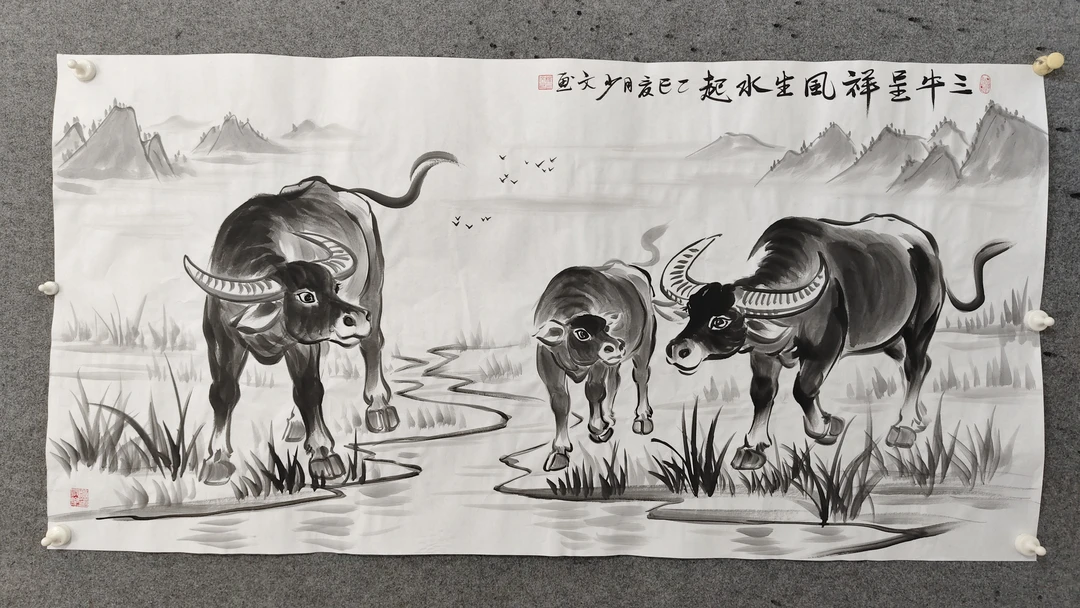 三牛呈祥风生水起 乙巳夏月少文画